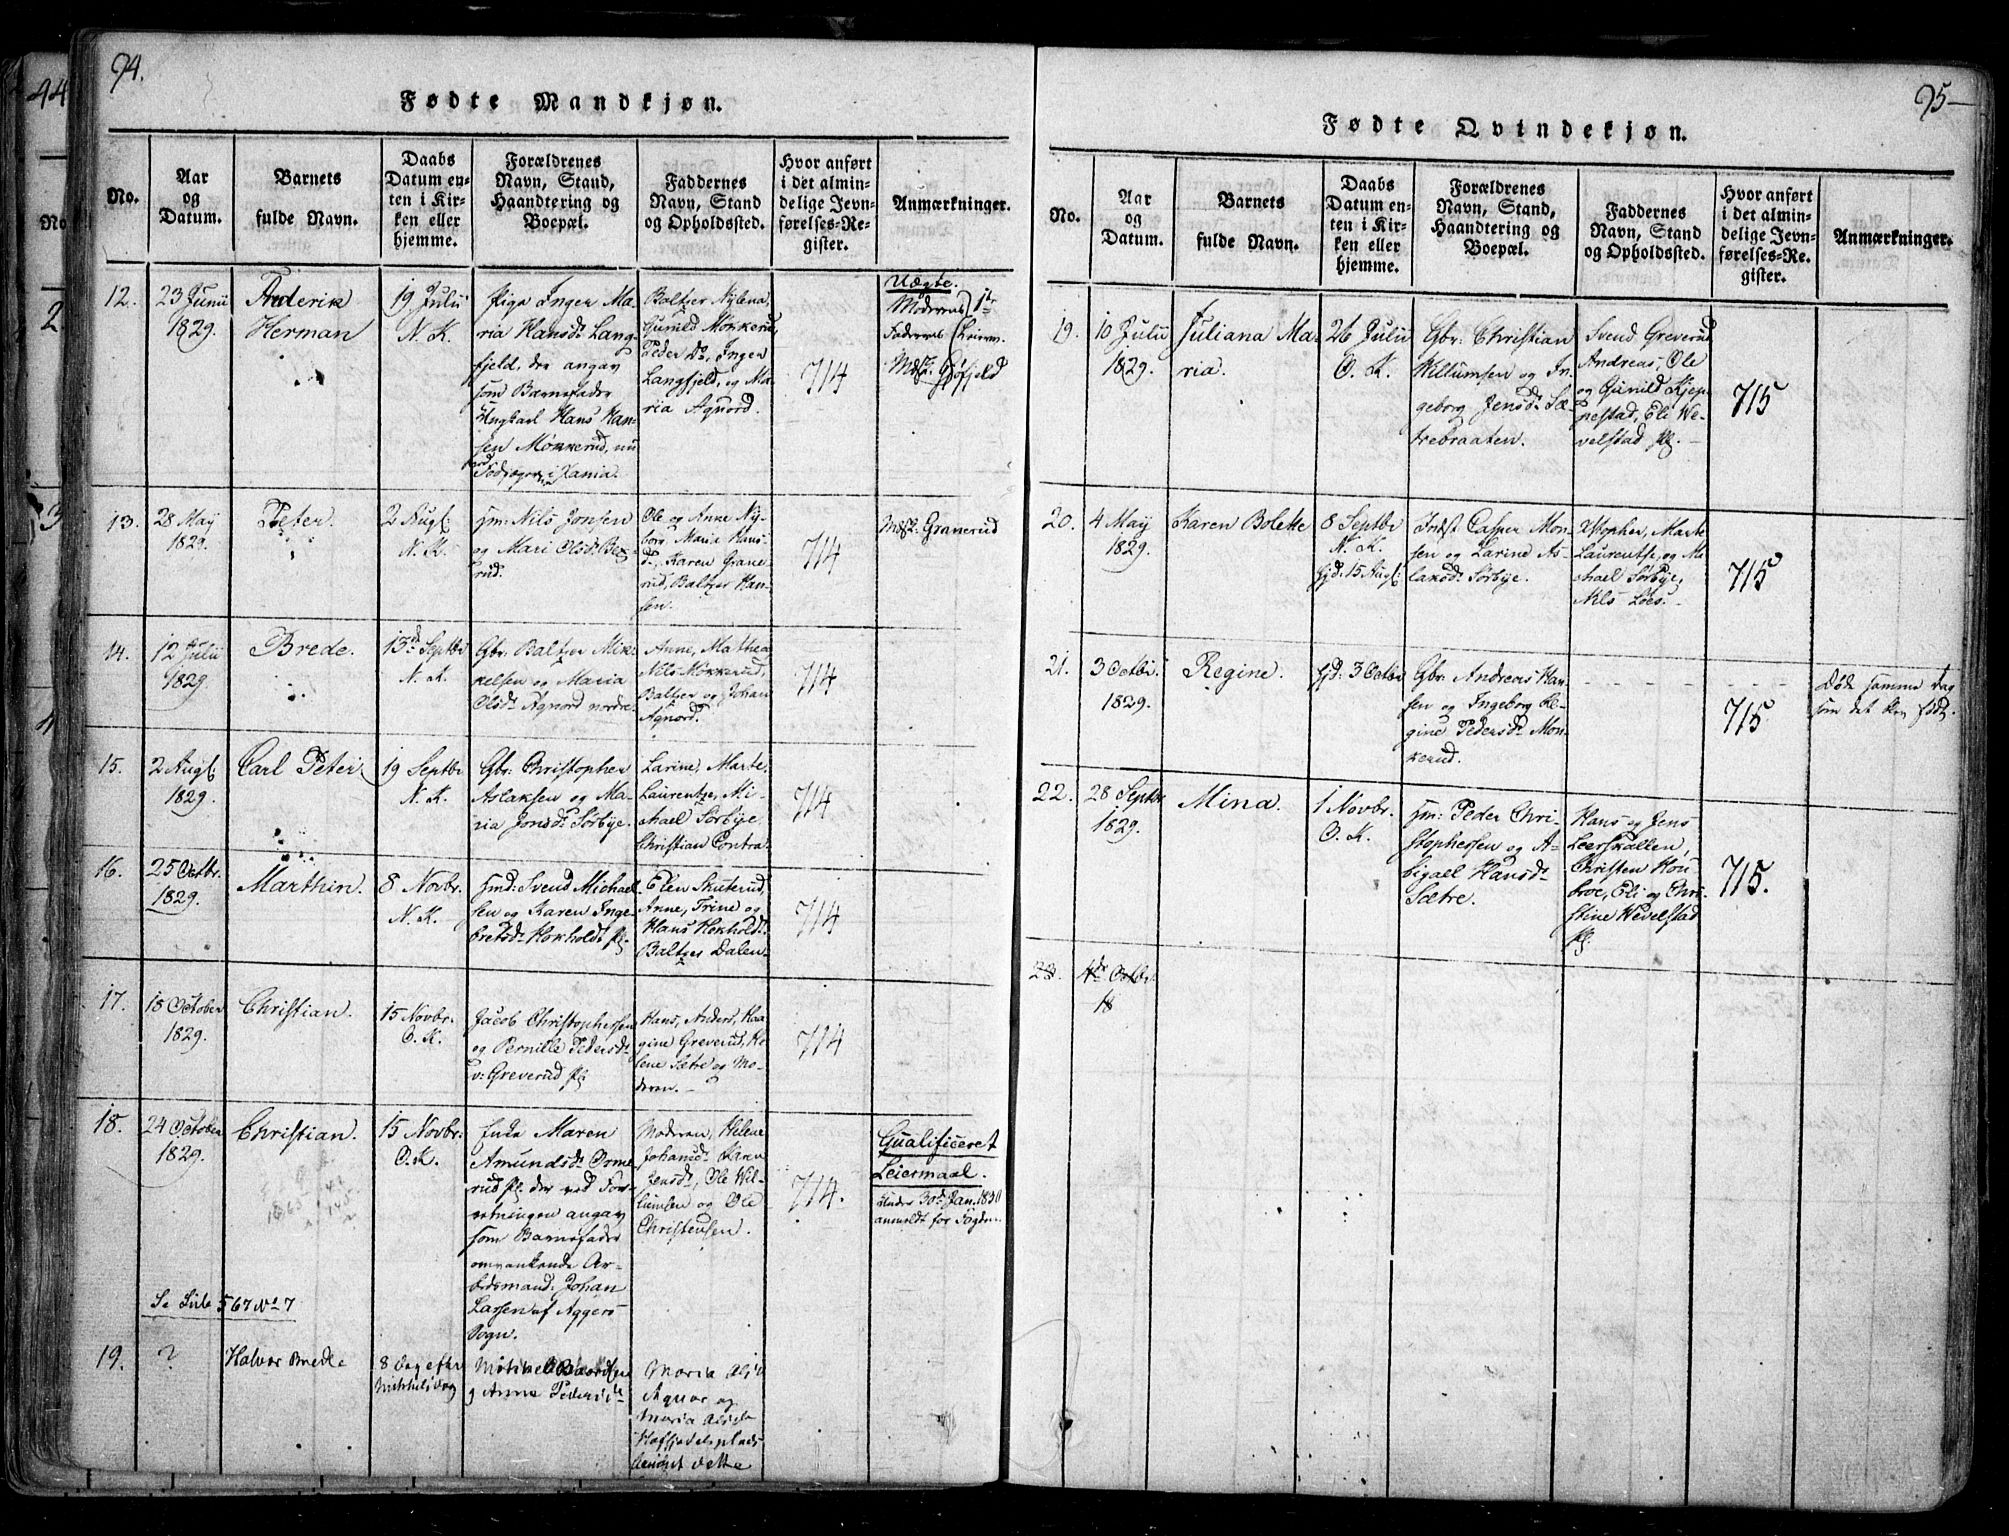 94.
Fødte Mandkjøn.
No.
Aar
og
Datum.
Barnets
fulde Navn.
Daabs
Datum en-
ten i Kir-
ken eller
hjemme.
Forældrenes
Navn, Stand,
Haandtering og
Boepæl.
Faddernes
Navn, Stand
og Opholdssted.
Hvor anført
i det almin-
delige Jevn-
førelses-Re-
gister.
Anmærkninger.
12.
23 Junii
1829.
Herman
19 Julii
N. K.
Pige Inger Ma-
ria Hansd. Lang-
fjeld, der angav
som Barnefader
Ungkarl Hans Han-
sen Mønkerud, nu
i Xania.
Baltzer Nylena,
Gunild Mønkerud,
Peder Do, Inger
Langfjeld, og Ma-
ria Agnord.
714
Uægte.
Moderens 1ste
Faderens Leierm.
13.
28 May
1829.
Peter.
2 Augs:
N. K.
Nils Jonsen
og Mari Olsd:
rud.
Ole og Anne Ny-
borg, Maria Hans-
d., Karen Grane-
rud, Baltzer Han-
sen.
714
Granerud
14.
12 Julii
1829.
Brede.
13de Septbr
N. K.
Gbr: Baltzer Mik-
kelsen og Maria
Olsd. Agnord nordre.
Anne, Mathea
Nils Mønkerud,
Baltzer og Johan
Agnord.
714
15.
2 Augs:
1829.
Carl Peter
19 Septbr
N. K.
Gbr: Christopher
Aslaksen og Ma-
ria Jonsd. Sørbye.
Larine, Marte,
Laurentze, Mi-
chael Sørbye
Christian Contra.
714
16.
25 Octbr.
1829.
Marthin.
8 Novbr.
N. K.
Svend Michael-
sen og Karen Inge-
bretsd. Hokholdt pl.
Elen Skuterud,
Anne, Trine og
Hans Hokholdt
Baltzer Dalen
714
17.
18 October
1829.
Christian.
15 Novbr.
O. K.
Jacob Christophersen
og Pernille Pedersd.
v: Greverud pl:
Hans, Anders,
gine Greverud, He-
lene Sætre og Mo-
deren.
714
18.
24 October
1829.
Christian.
15 Novbr.
O. K.
Enke Maren
Amundsd. Orme-
rud pl. der ved For-
retningen angav
som Barnefader
omvankende Ar-
beidsmand: Johan
Larsen af Aggers
Sogn.
Moderen, Helene
Johansd. Karen
Jensd., Ole Wil-
lumsen og Ole
Christensen.
714.
Qualificeret
Leiermaal.
Under 30. Jan. 1830
anmeldt for Fogden.
Se Side 567 No 7
19.
?
Halvor Brede
8 Dag efter
Mikkelsdag
og Anne Pedersd.
Maria
Agnor og
Maria
95
Fødte Qvindekjøn.
No.
Aar
og
Datum.
Barnets
fulde Navn.
Daabs
Datum en-
ten i Kir-
ken eller
hjemme.
Forældrenes
Navn, Stand,
Haandtering og
Boepæl.
Faddernes
Navn, Stand
og Opholdssted.
Hvor anført
i det almin-
delige Jevn-
førelses-Re-
gister.
Anmærkninger.
19.
10 Julii
1829.
Juliana Ma-
ria.
26 Julii
O. K.
Gbr: Christian
Willumsen og In-
geborg Jensd. Sæ-
trebraaten.
Svend Greverud
Andreas, Ole
og Gunild Kjep-
pestad, Eli We-
velstad pl.
715
20.
4 May
1829.
Karen Bolette
8 Septbr
N. K.
hjd: 15 Augs:
Indst. Casper Mon-
sen og Larine As-
laksd. Sørbye.
Xstopher, Marte
Laurentze, og Mi-
chael Sørbye,
Nils Loes.
715
21.
3 Octbr.
1829.
Regine.
hjd: 3 Octbr
Gbr: Andreas Han-
sen og Ingeborg Re-
gine Pedersd. Mon-
kerud.
715
Døde samme Dag
som det blev født.
22.
28 Septbr
1829.
Mina.
1 Novbr.
O. K.
Peder Chri-
stophersen og A-
bigael Hansd.
Sætre.
Hans og Jens
Leerskallen,
Christen Kou-
broe, Eli og Chri-
stine Wevelstad
pl.
715.
23.
4de Octbr.
18